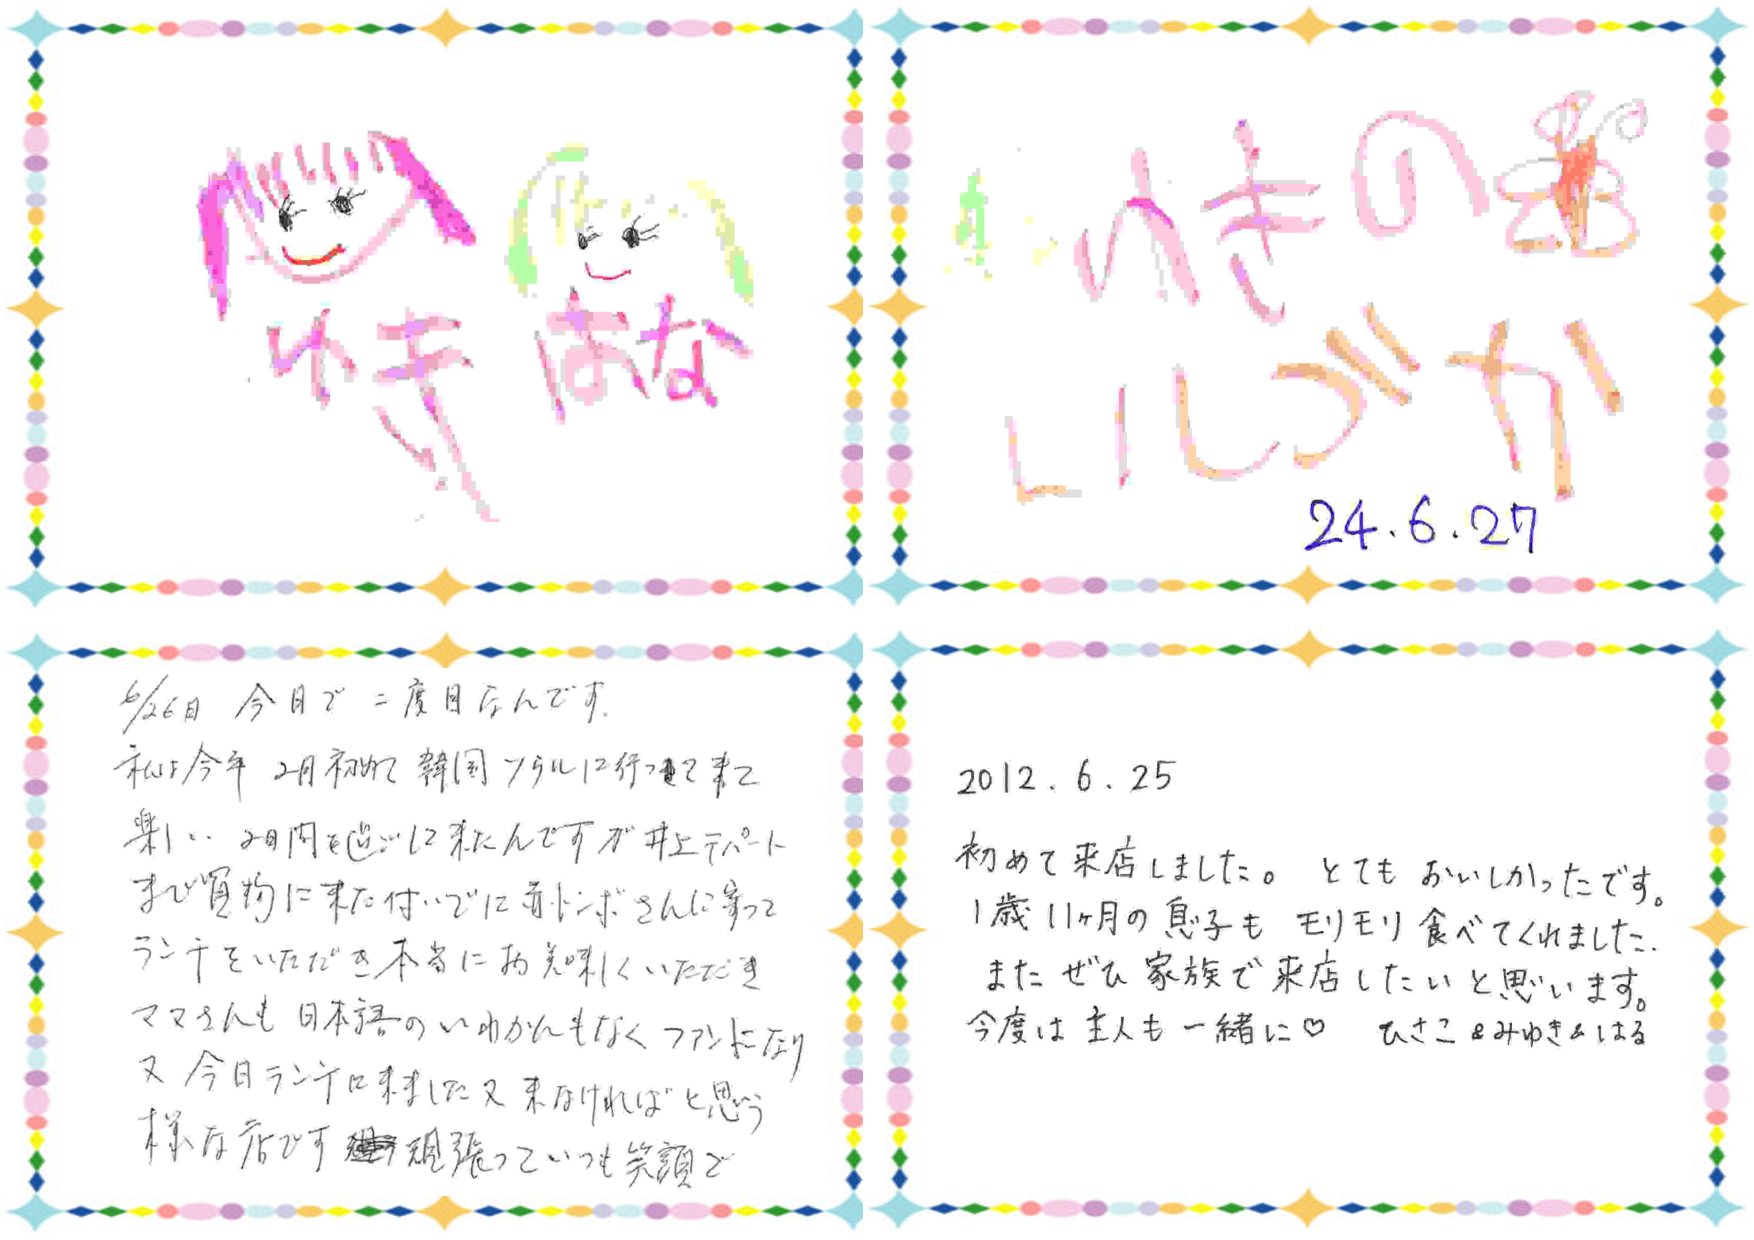 ゆき はな
ゆきの
いしづか
24.6.27
6/26日 今日で二度目なんです。
私は今年 2月初めて韓国ソウルに行って来て
楽しい 2日間を過ごして来たんですが井上デパート
まで買物に来た付いでに赤トンボさんに寄って
ランチをいただき本当にお美味しくいただき
ママさんも日本語のいわかんもなくファンになり
又今日ランチに来ました又来なければと思う
様な店です 頑張っていつも笑顔で
2012.6.25
初めて来店しました。とてもおいしかったです。
1歳11ヶ月の息子もモリモリ食べてくれました.
またぜひ家族で来店したいと思います。
今度は主人も一緒に♡ ひさこ&みゆき&はる